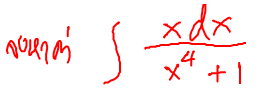 จงหาค่า ∫ x dx / (x⁴ + 1)